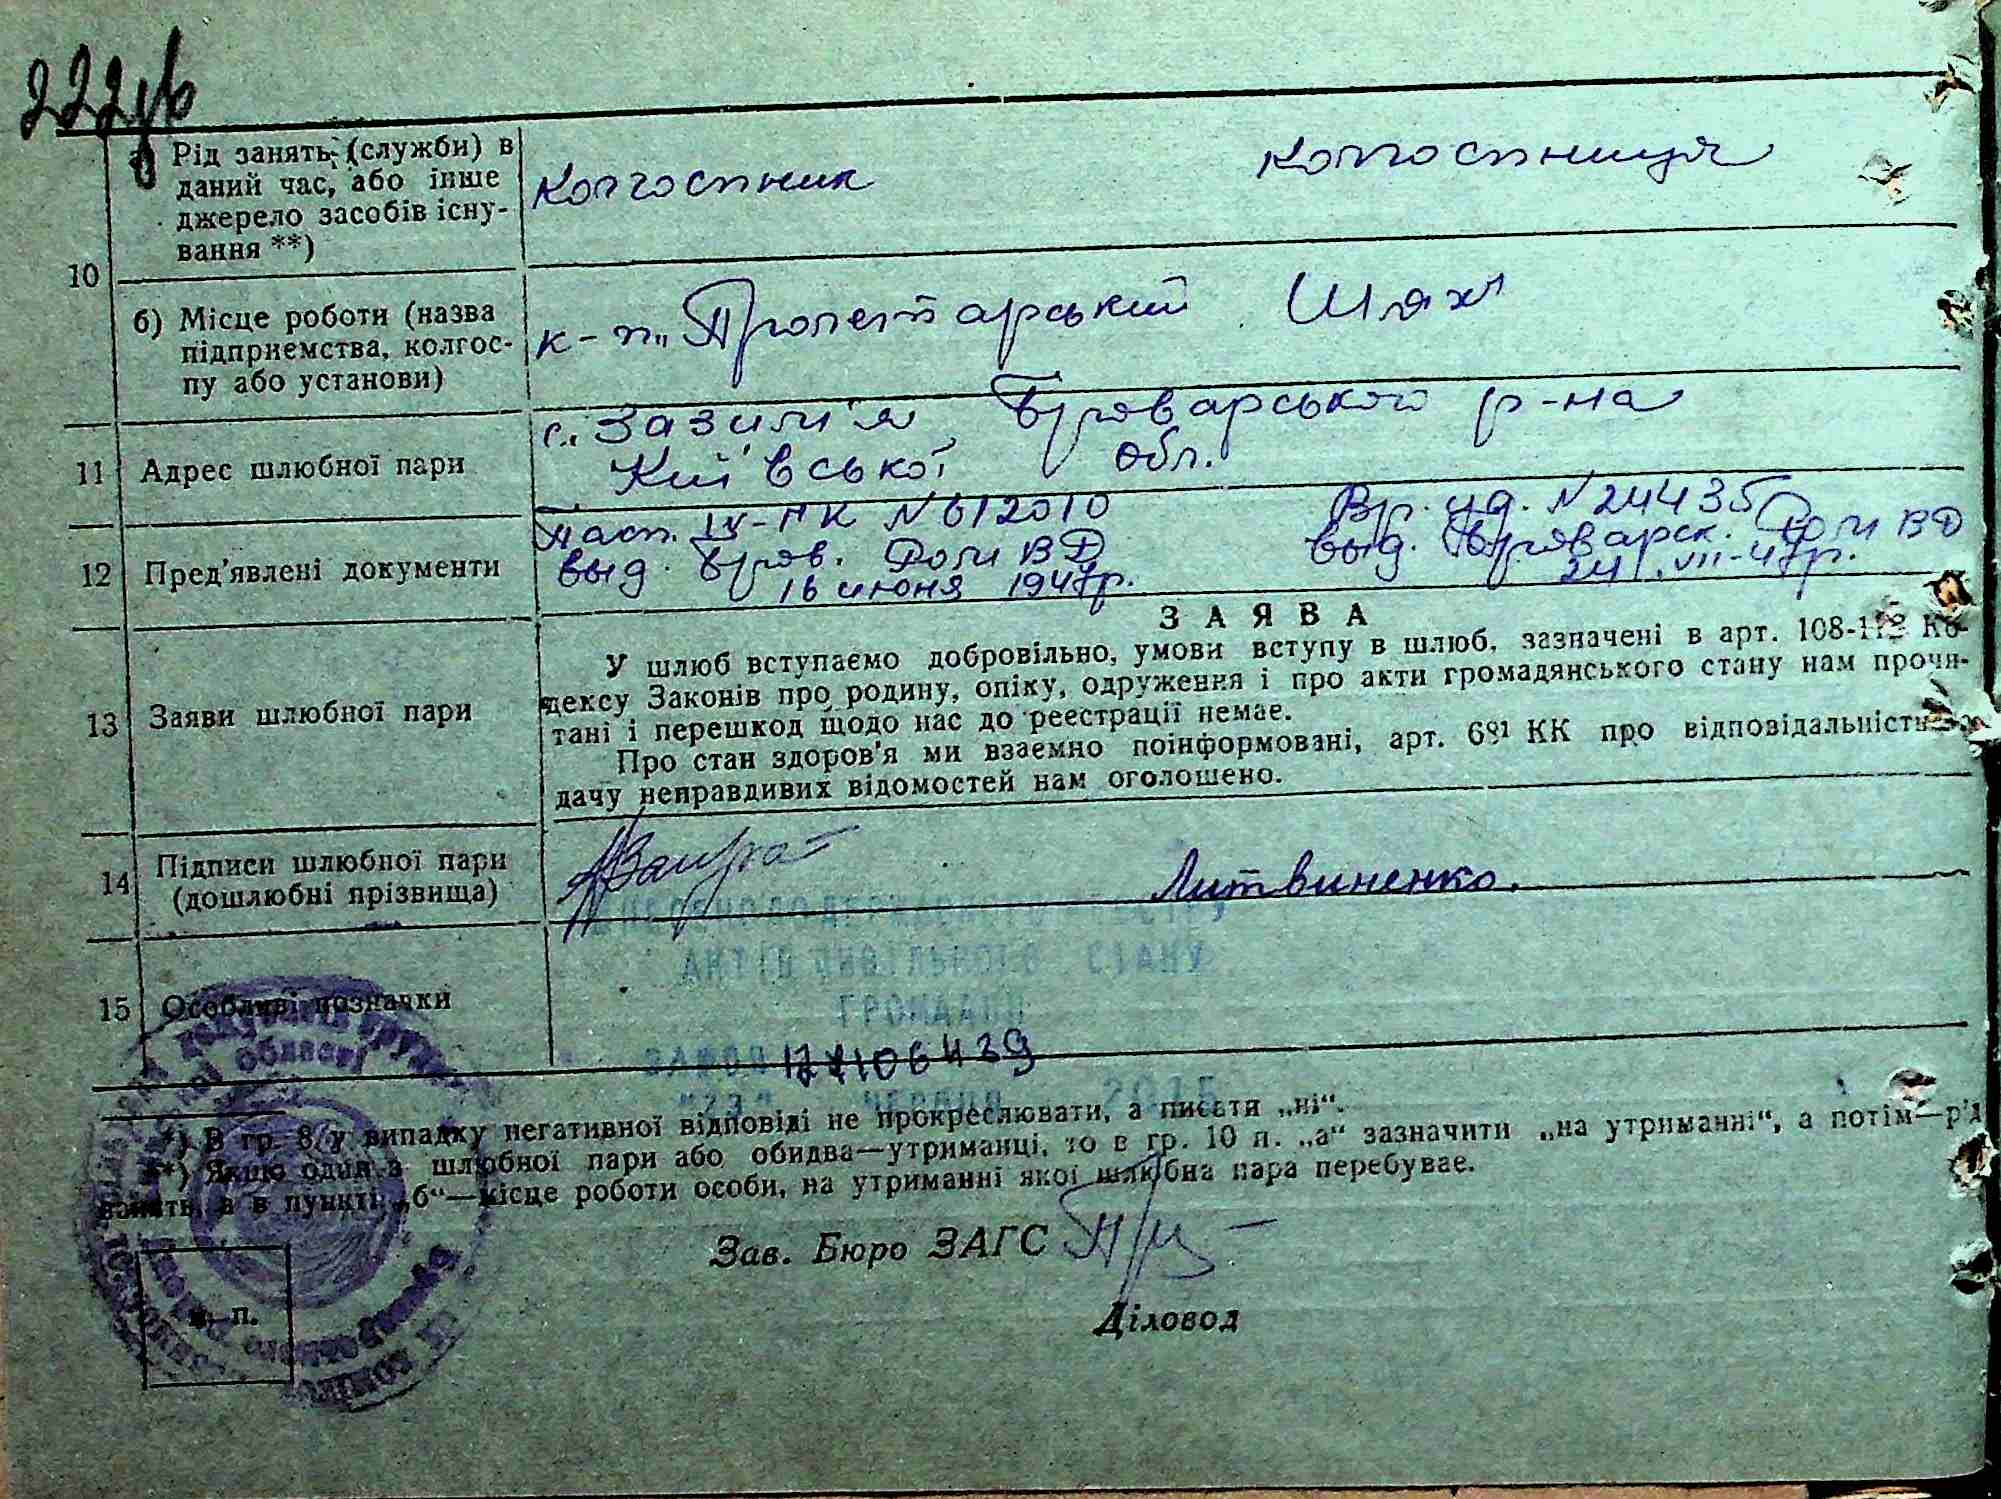 222зв
а) Рід занять, (служби) в
даний час, або інше
джерело засобів існу-
вання **)
колгоспник колгоспниця
10
б) Місце роботи (назва
підприємства, колгос-
пу або установи)
к-п „Пролетарський Шлях"
11 Адрес шлюбної пари
с. Зазим'я Броварського р-на
Київської обл.
12 Пред'явлені документи
Пасп. IV-ПК № 612010
выд. Бров. РОМВД
16 июня 1947р.
Вр. уд. № 24435
выд. Броварск. РОМВД
24.VII-47р.
ЗАЯВА
13 Заяви шлюбної пари
У шлюб вступаємо добровільно, умови вступу в шлюб, зазначені в арт. 108-112 Ко-
дексу Законів про родину, опіку, одруження і про акти громадянського стану нам прочи-
тані і перешкод щодо нас до реєстрації немає.
Про стан здоров'я ми взаємно поінформовані, арт. 68¹ КК про відповідальність за
дачу неправдивих відомостей нам оголошено.
14 Підписи шлюбної пари
(дошлюбні прізвища)
Литвиненко.
ДЕРЖАВНОГО РЕЄСТРУ
АКТІВ ЦИВІЛЬНОГО СТАНУ
ГРОМАДЯН
15 Особливі позначки
"23" ЧЕРВНЯ 2015
*) В гр. 8 у випадку негативної відповіді не прокреслювати, а писати „ні“.
**) Якщо один з шлюбної пари або обидва—утриманці, то в гр. 10 п. „а“ зазначити „на утриманні“, а потім—рід
занять, а в пункті „б“—місце роботи особи, на утриманні якої шлюбна пара перебуває.
Зав. Бюро ЗАГС
м. п.
Діловод